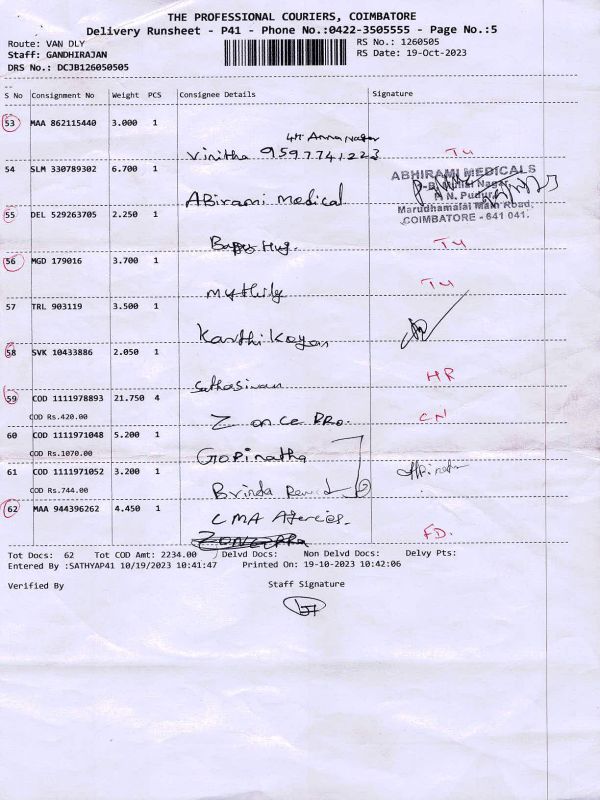 THE PROFESSIONAL COURIERS, COIMBATORE
Delivery Runsheet - P41 - Phone No.:0422-3505555 - Page No.:5
Route: VAN DLY
Staff: GANDHIRAJAN
DRS No.: DCJB126050505
RS No.: 1260505
RS Date: 19-Oct-2023
S No Consignment No Weight PCS Consignee Details Signature
53 MAA 862115440 3.000 1
Anna Nagar
Vinitha 9597741223 TU
54 SLM 330789302 6.700 1
ABirami Medical
ABHIRAMI MEDICALS
Nagar,
P.N. Pudur,
Marudhamalai Main Road,
COIMBATORE - 641 041.
55 DEL 529263705 2.250 1
TU
56 MGD 179016 3.700 1
mythily TU
57 TRL 903119 3.500 1
Karthikeyan
58 SVK 10433886 2.050 1
Sathasivan HR
59 COD 1111978893 21.750 4
COD Rs.420.00
Z once PRO. CN
60 COD 1111971048 5.200 1
COD Rs.1070.00
Gopinatha
61 COD 1111971052 3.200 1
COD Rs.744.00
Brinda
62 MAA 944396262 4.450 1
CMA Agencies.
FD.
Tot Docs: 62 Tot COD Amt: 2234.00 Delvd Docs: Non Delvd Docs: Delvy Pts:
Entered By :SATHYAP41 10/19/2023 10:41:47 Printed On: 19-10-2023 10:42:06
Verified By Staff Signature